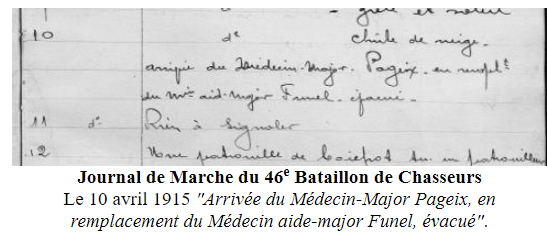 10 d° chute de neige.
arrivée du Médecin-Major Pageix en rempl.t
du M.in aid-major Funel. évacué.
11 d° Rien à signaler
12 Une patrouille de tue un patrouilleur
Journal de Marche du 46e Bataillon de Chasseurs
Le 10 avril 1915 "Arrivée du Médecin-Major Pageix, en
remplacement du Médecin aide-major Funel, évacué".